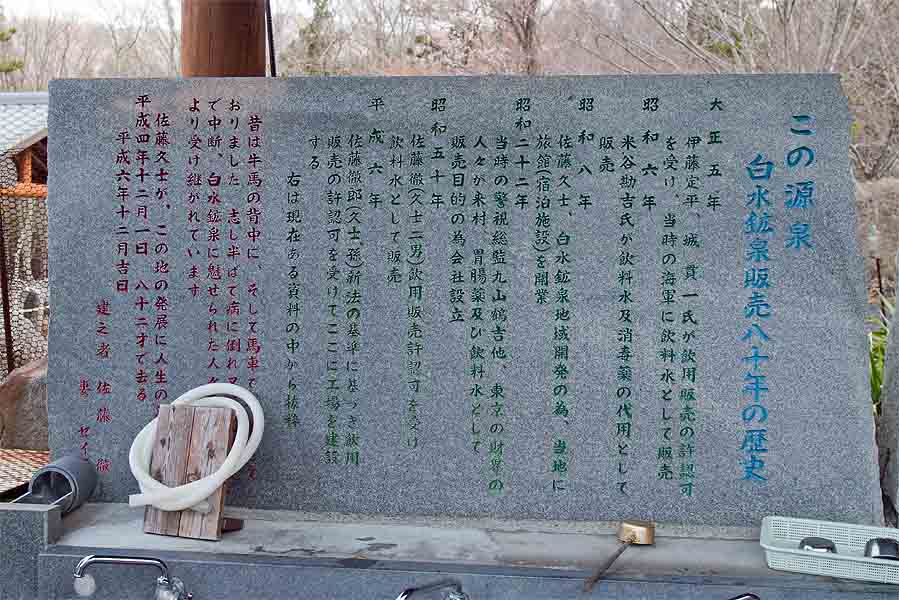 この源泉
白水鉱泉販売八十年の歴史
大正五年
伊藤定平、城貫一氏が飲用販売の許認可
を受け、当時の海軍に飲料水として販売
昭和六年
米谷勘吉氏が飲料水及消毒薬の代用として
販売
昭和八年
佐藤久士、白水鉱泉地域開発の為、当地に
旅舘(宿泊施設)を開業
昭和二十二年
当時の警視総監丸山鶴吉他、東京の財界の
人々が来村 胃腸薬及び飲料水として
販売目的の為会社設立
昭和五十年
佐藤徹(久士二男)飲用販売許認可を受け
飲料水として販売
平成六年
佐藤徹郎(久士孫)新法の基準に基づき飲用
販売の許認可を受けてここに工場を建設
する
右は現在ある資料の中から抜粋
昔は牛馬の背中に、そして馬車で
おりました 志し半ばで病に倒れ
で中断、白水鉱泉に魅せられた人々
より受け継がれています
佐藤久士が、この地の発展に人生の
平成四年十二月一日 八十二才で去る
平成六年十二月吉日
建之者 佐藤徹
妻 セイ